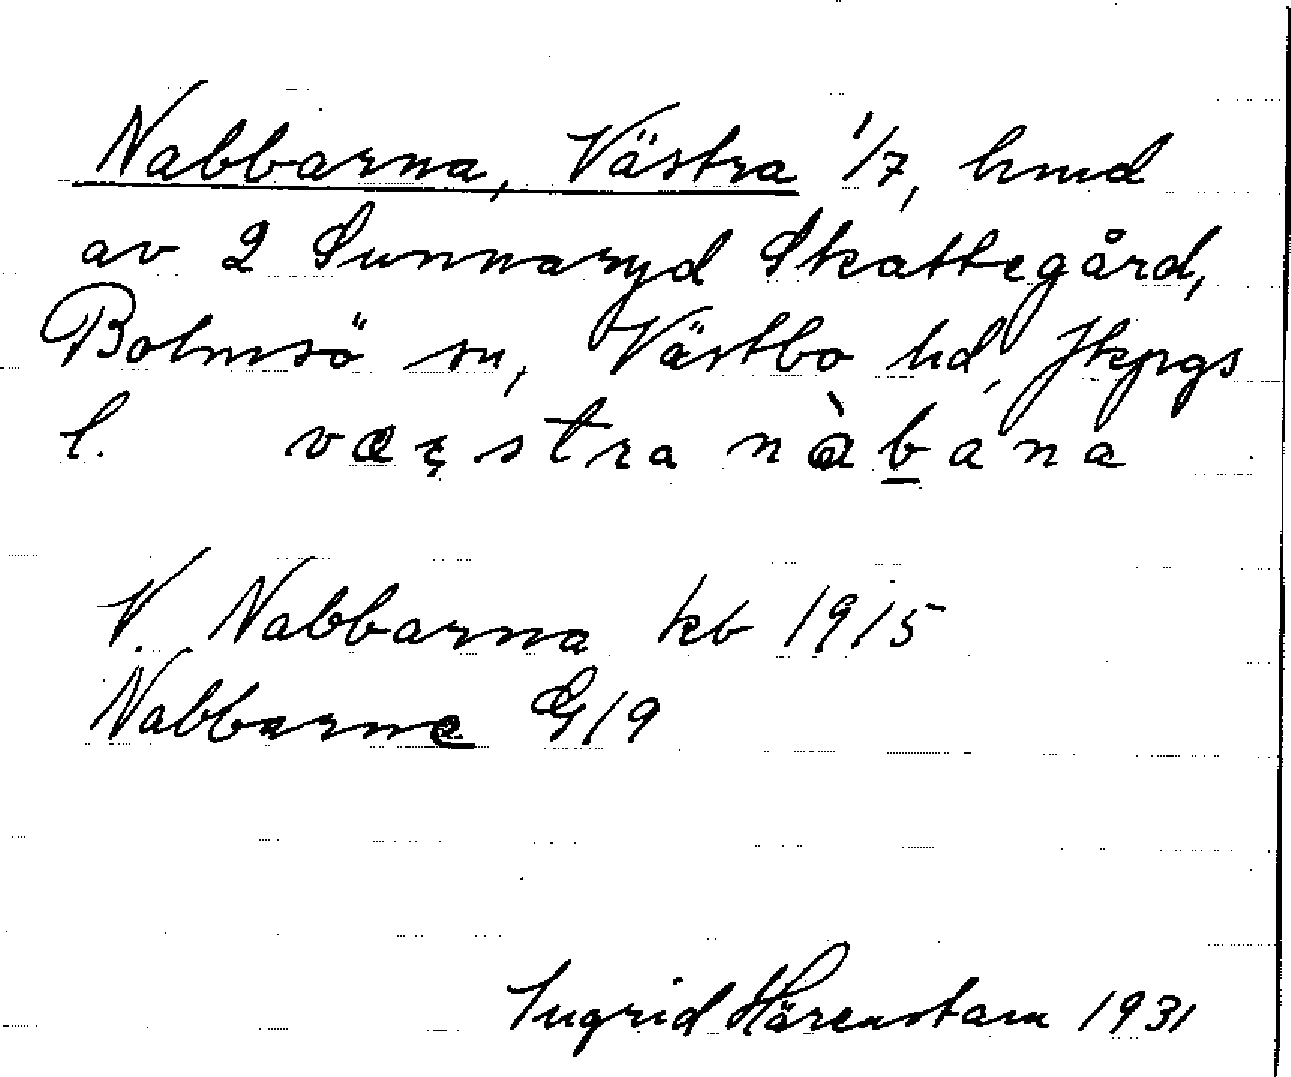 Nabbarna, Västra 1/7, hmd
av 2 Sunnaryd Skattegård,
Bolmsö sn, Västbo hd, Jkpgs
l. væstra nàbana
V. Nabbarna kb 1915
Nabbarne G 19
Ingrid Härenstam 1931